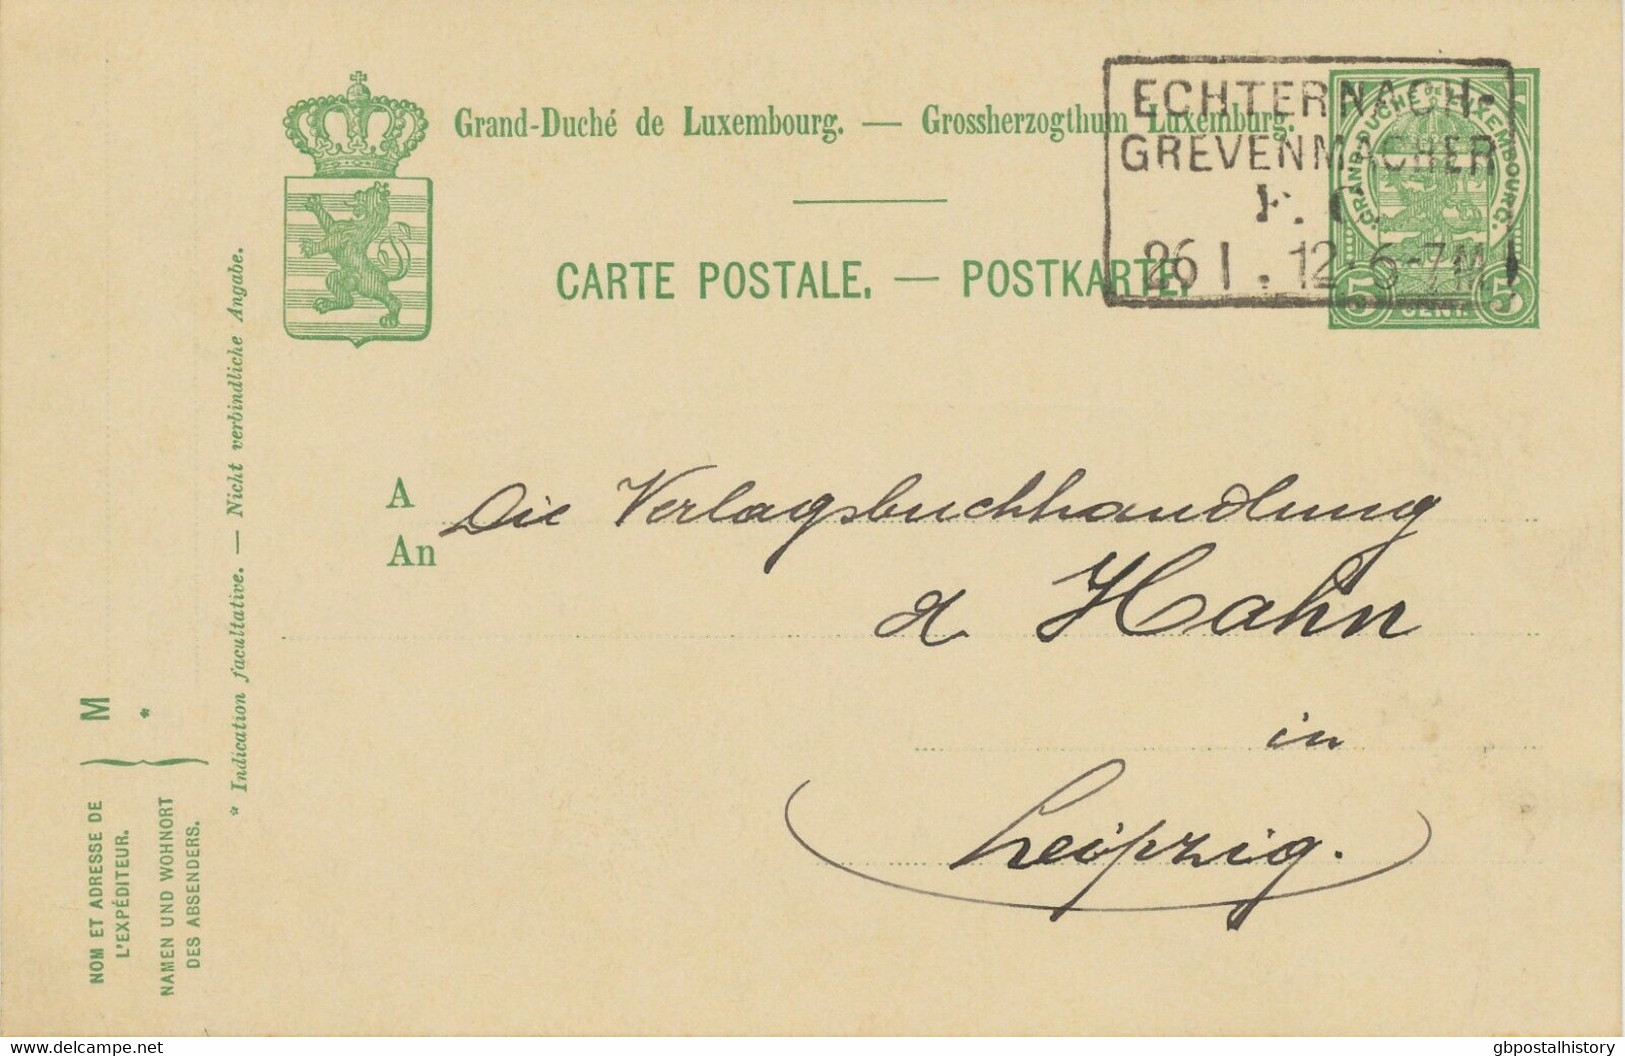 Grand-Duché de Luxembourg. — Grossherzogthum Luxemburg.
ECHTERNACH-
GREVENMACHER
26 I . 12 - 6-7M
GRAND-DUCHÉ DE LUXEMBOURG.
5 CENT. 5
CARTE POSTALE. — POSTKARTE.
A
An
Die Verlagsbuchhandlung
d Hahn
in
Leipzig.
* Indication facultative. — Nicht verbindliche Angabe.
M
*
NOM ET ADRESSE DE
L'EXPÉDITEUR.
NAMEN UND WOHNORT
DES ABSENDERS.
delcampe.net
gbpostalhistory